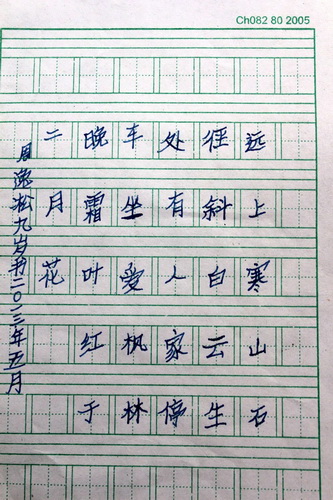 Ch082 80 2005
远上寒山石
径斜白云生
处有人家停
车坐爱枫林
晚霜叶红于
二月花
周逸淞九岁书二〇一三年五月